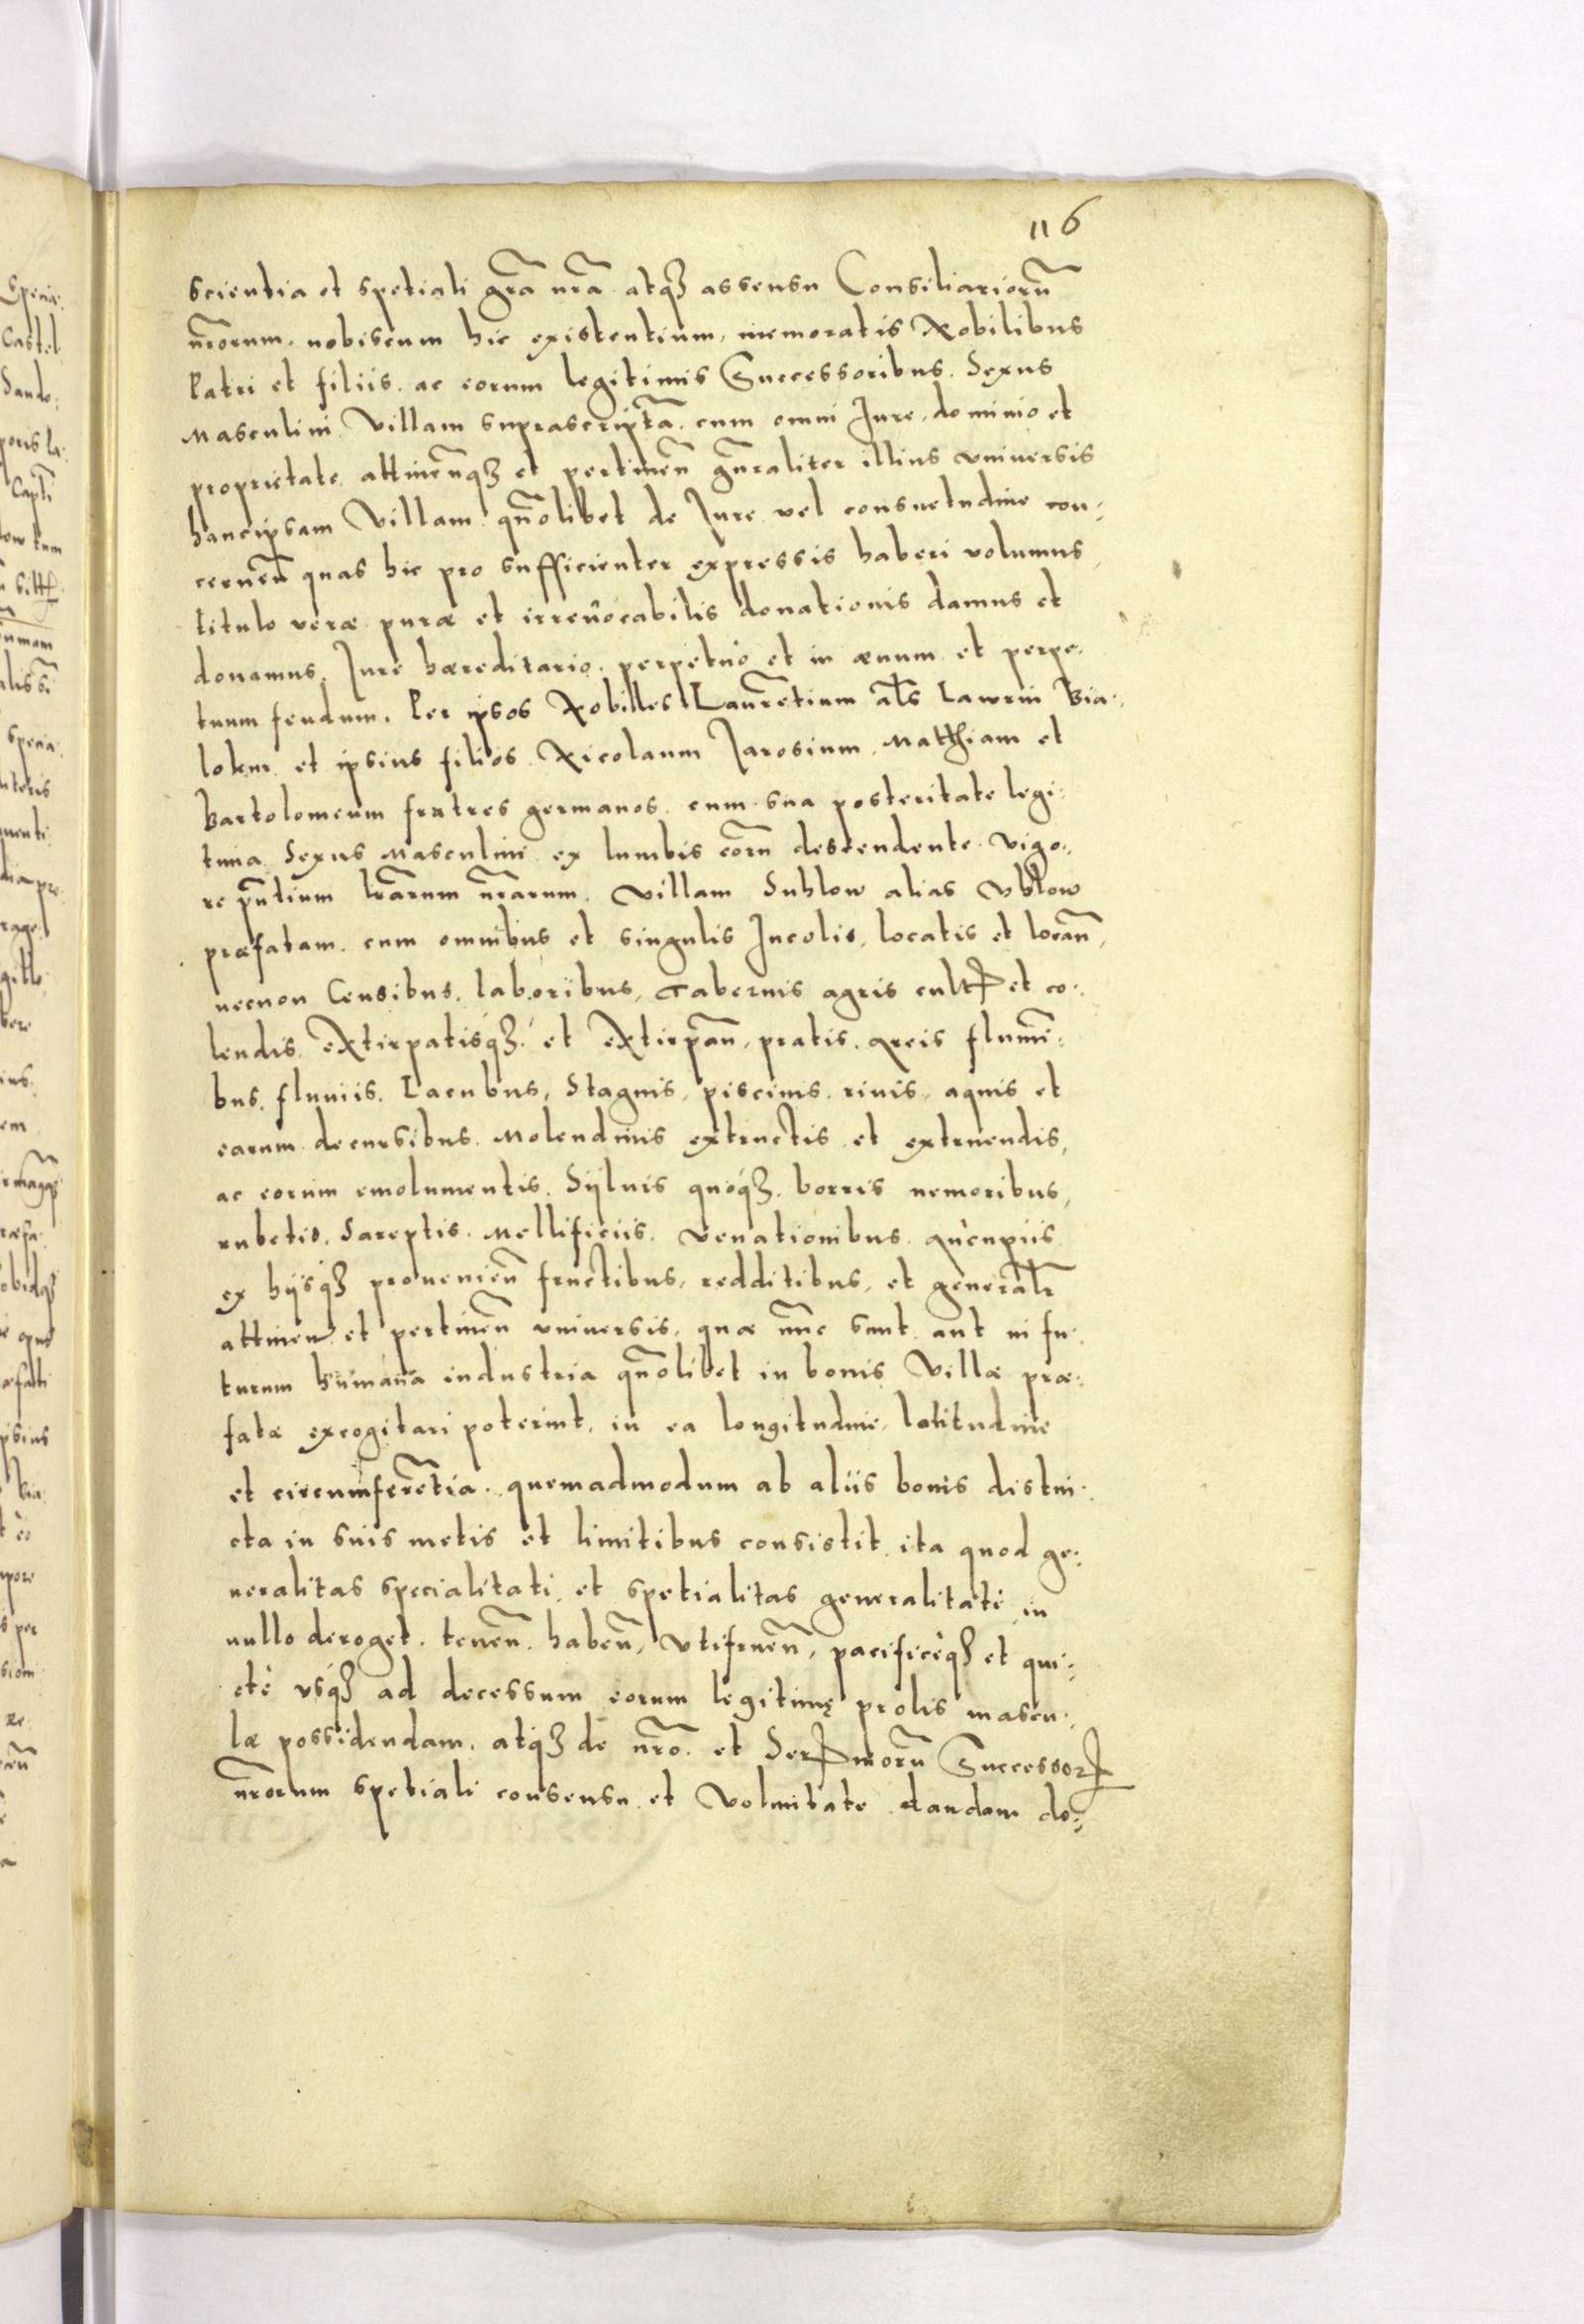 116
scientia et spetiali gr̃a nr̃a atqꝫ assensu Consiliariorũ
nr̃orum. nobiscum hic existentium, memoratis Nobilibus
Patri et filiis. ac eorum legitimis Successoribus. Sexus
Masculini Villam suprascriptã. cum omni Jure. dominio et
proprietate attineñqꝫ et pertineñ gñraliter illius vniuersis
hancipsam Villam qñolibet de Jure vel consuetudine con:
cerneñ quas hic pro sufficienter expressis haberi volumus,
titulo veræ puræ et irreuocabilis donationis damus et
donamus. Jure hæreditario. perpetuò et in æuum et perpe.
tuum feudum. Per ipsos Nobilles Laurẽtium al̃s Lawrin Bia.
lokur et ipsius filios Nicolaum Jarosium. Matthiam et
Bartolomeum fratres germanos. cum sua posteritate legi:
tima Sexus Masculini ex lumbis eorũ descendente. Vigo..
re pñtium lr̃arum nr̃arum. Villam Suhlow alias Vblow
præfatam. cum omnibus et singulis Incolis, locatis et locañ,
necnon Censibus. laboribus, Tabernis agris cultꝭ et co..
lendis. extirpatisqꝫ. et extirpañ, pratis. areis flumi:
bus. fluuiis. Lacubus, Stagnis, piscinis. riuis, aquis et
earum decursibus. Molendinis extructis et extruendis,
ac eorum emolumentis. Syluis quoqꝫ. borris nemoribus,
rubetis, Sareptis. Mellificiis. Venationibus. aucupiis
ex hijsqꝫ proueniẽn fructibus, redditibus, et generalr̃
attineñ et pertineñ vniuersis, quæ nũc sunt aut in fu.
turum humana industria qñolibet in bonis Villæ præ:
fatæ excogitari poterint, in ea longitudine, latitudine
et circumferẽtia. quemadmodum ab aliis bonis distin.
cta in suis metis et limitibus consistit. ita quod ge:
neralitas specialitati. et spetialitas generalitati in
nullo deroget. teneñ. habeñ, vtifrueñ, pacificèqꝫ et qui:
etè vsqꝫ ad decessum eorum legitimę prolis mascu.
læ possidendam. atqꝫ de nr̃o. et Serꝭmorũ Successorꝭ
nr̃orum spetiali consensu et Voluntate dandam do: